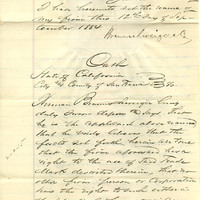 I have hereunto set the name of
firm from this 12th day of Sep-
tember 1884
Oath
State of California
City & County of San Francisco } SS.
being
duly sworn deposes & says that
he is the applicant above named
that he verily believes that the
facts set forth herein are true
that the firm aforesaid has a
right to the use of the Trade
Mark described therein, that no
other firm person or corporation
has the right to such either in